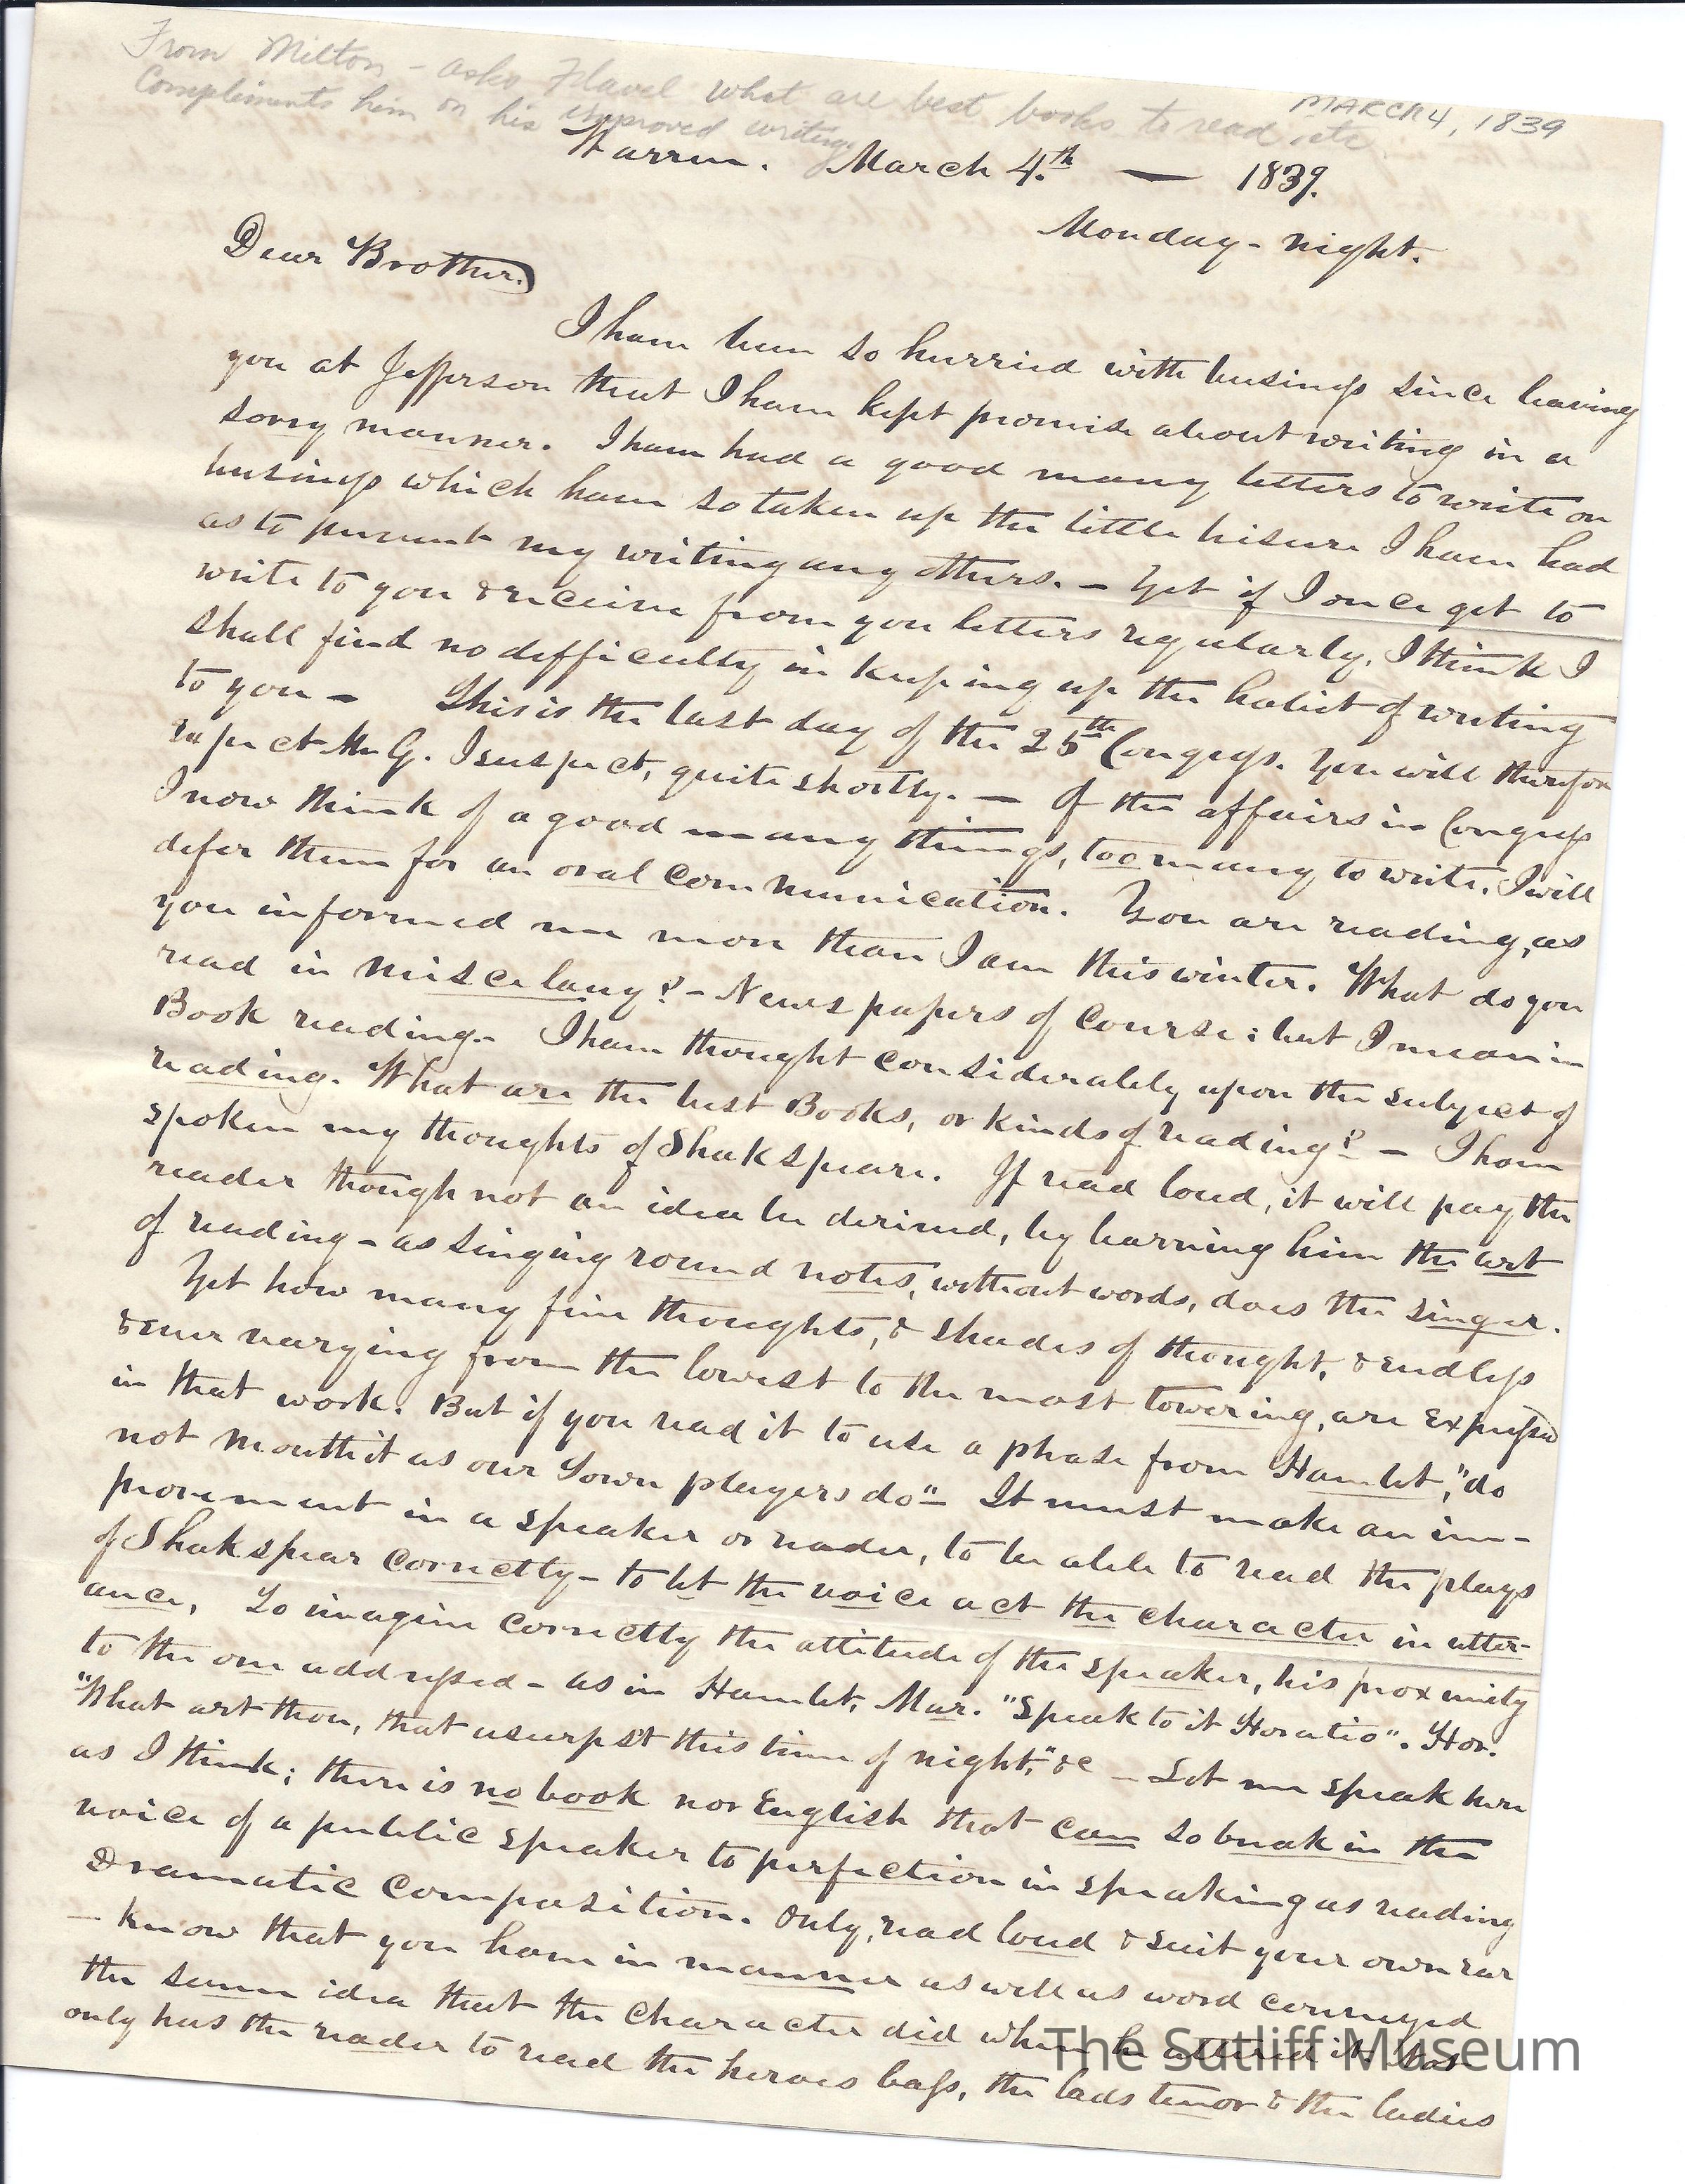 From Milton - asks Flavel what are best books to read, etc
MARCH 4, 1839
Compliments him on his improved writing
Warren. March 4th — 1839.
Monday - night.
Dear Brother.
I have been so hurried with business since leaving
you at Jefferson that I have kept promise about writing in a
sorry manner. I have had a good many letters to write on
business which have so taken up the little leisure I have had
as to prevent my writing any others. - Yet if I once get to
write to you & receive from you letters regularly, I think I
shall find no difficulty in keeping up the habit of writing
to you - This is the last day of the 25th Congress. You will therefore
expect Mr G. I suspect, quite shortly. - Of the affairs in Congress
I now think of a good many things, too many to write. I will
defer them for an oral communication. You are reading, as
you informed me more than I am this winter. What do you
read in miscelany? - News papers of course: but I mean in
Book reading. - I have thought considerably upon the subject of
reading. What are the best Books, or kinds of reading? - I have
spoken my thoughts of Shakspeare. If read loud, it will pay the
reader though not an idea be derived, by learning him the art
of reading - as singing round notes, without words, does the singer.
Yet how many fine thoughts, & shades of thought, & endless
& ever varying from the lowest to the most towering, are expressed
in that work. But if you read it to use a phrase from Hamlet, "do
not mouth it as our Town players do" It must make an im-
provement in a speaker or reader, to be able to read the plays
of Shakspear correctly - to let the voice act the character in utter-
ance. To imagine correctly the attitude of the speaker, his proximity
to the one addressed - as in Hamlet, Mar. "Speak to it Horatio". Hor.
"What art thou, that usurpst this time of night," &c - Let me speak here
as I think; there is no book nor English that can so break in the
voice of a public speaker to perfection in speaking as reading
Dramatic Composition. Only, read loud & suit your own ear
- know that you have in manner as well as word conveyed
the same idea that the character did when he uttered it. Not
only has the reader to read the heroes bass, the lads tenor & the ladies
The Sutliff Museum